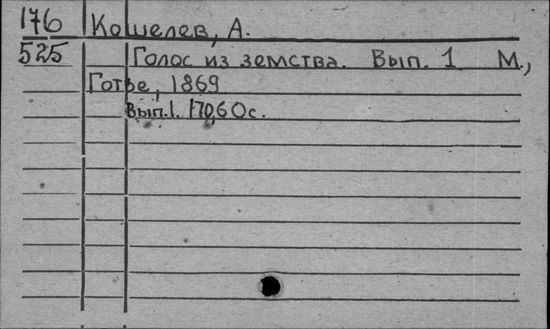 176 Кошелев, А.
525 Голос из земства. Вып. 1 М.,
Готье, 1869
Вып. 1. 170,60с.